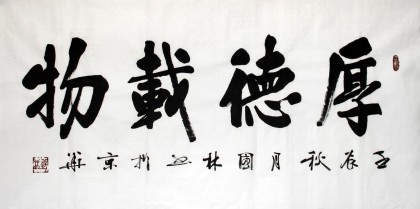 厚德載物
壬辰秋月國林書於京華